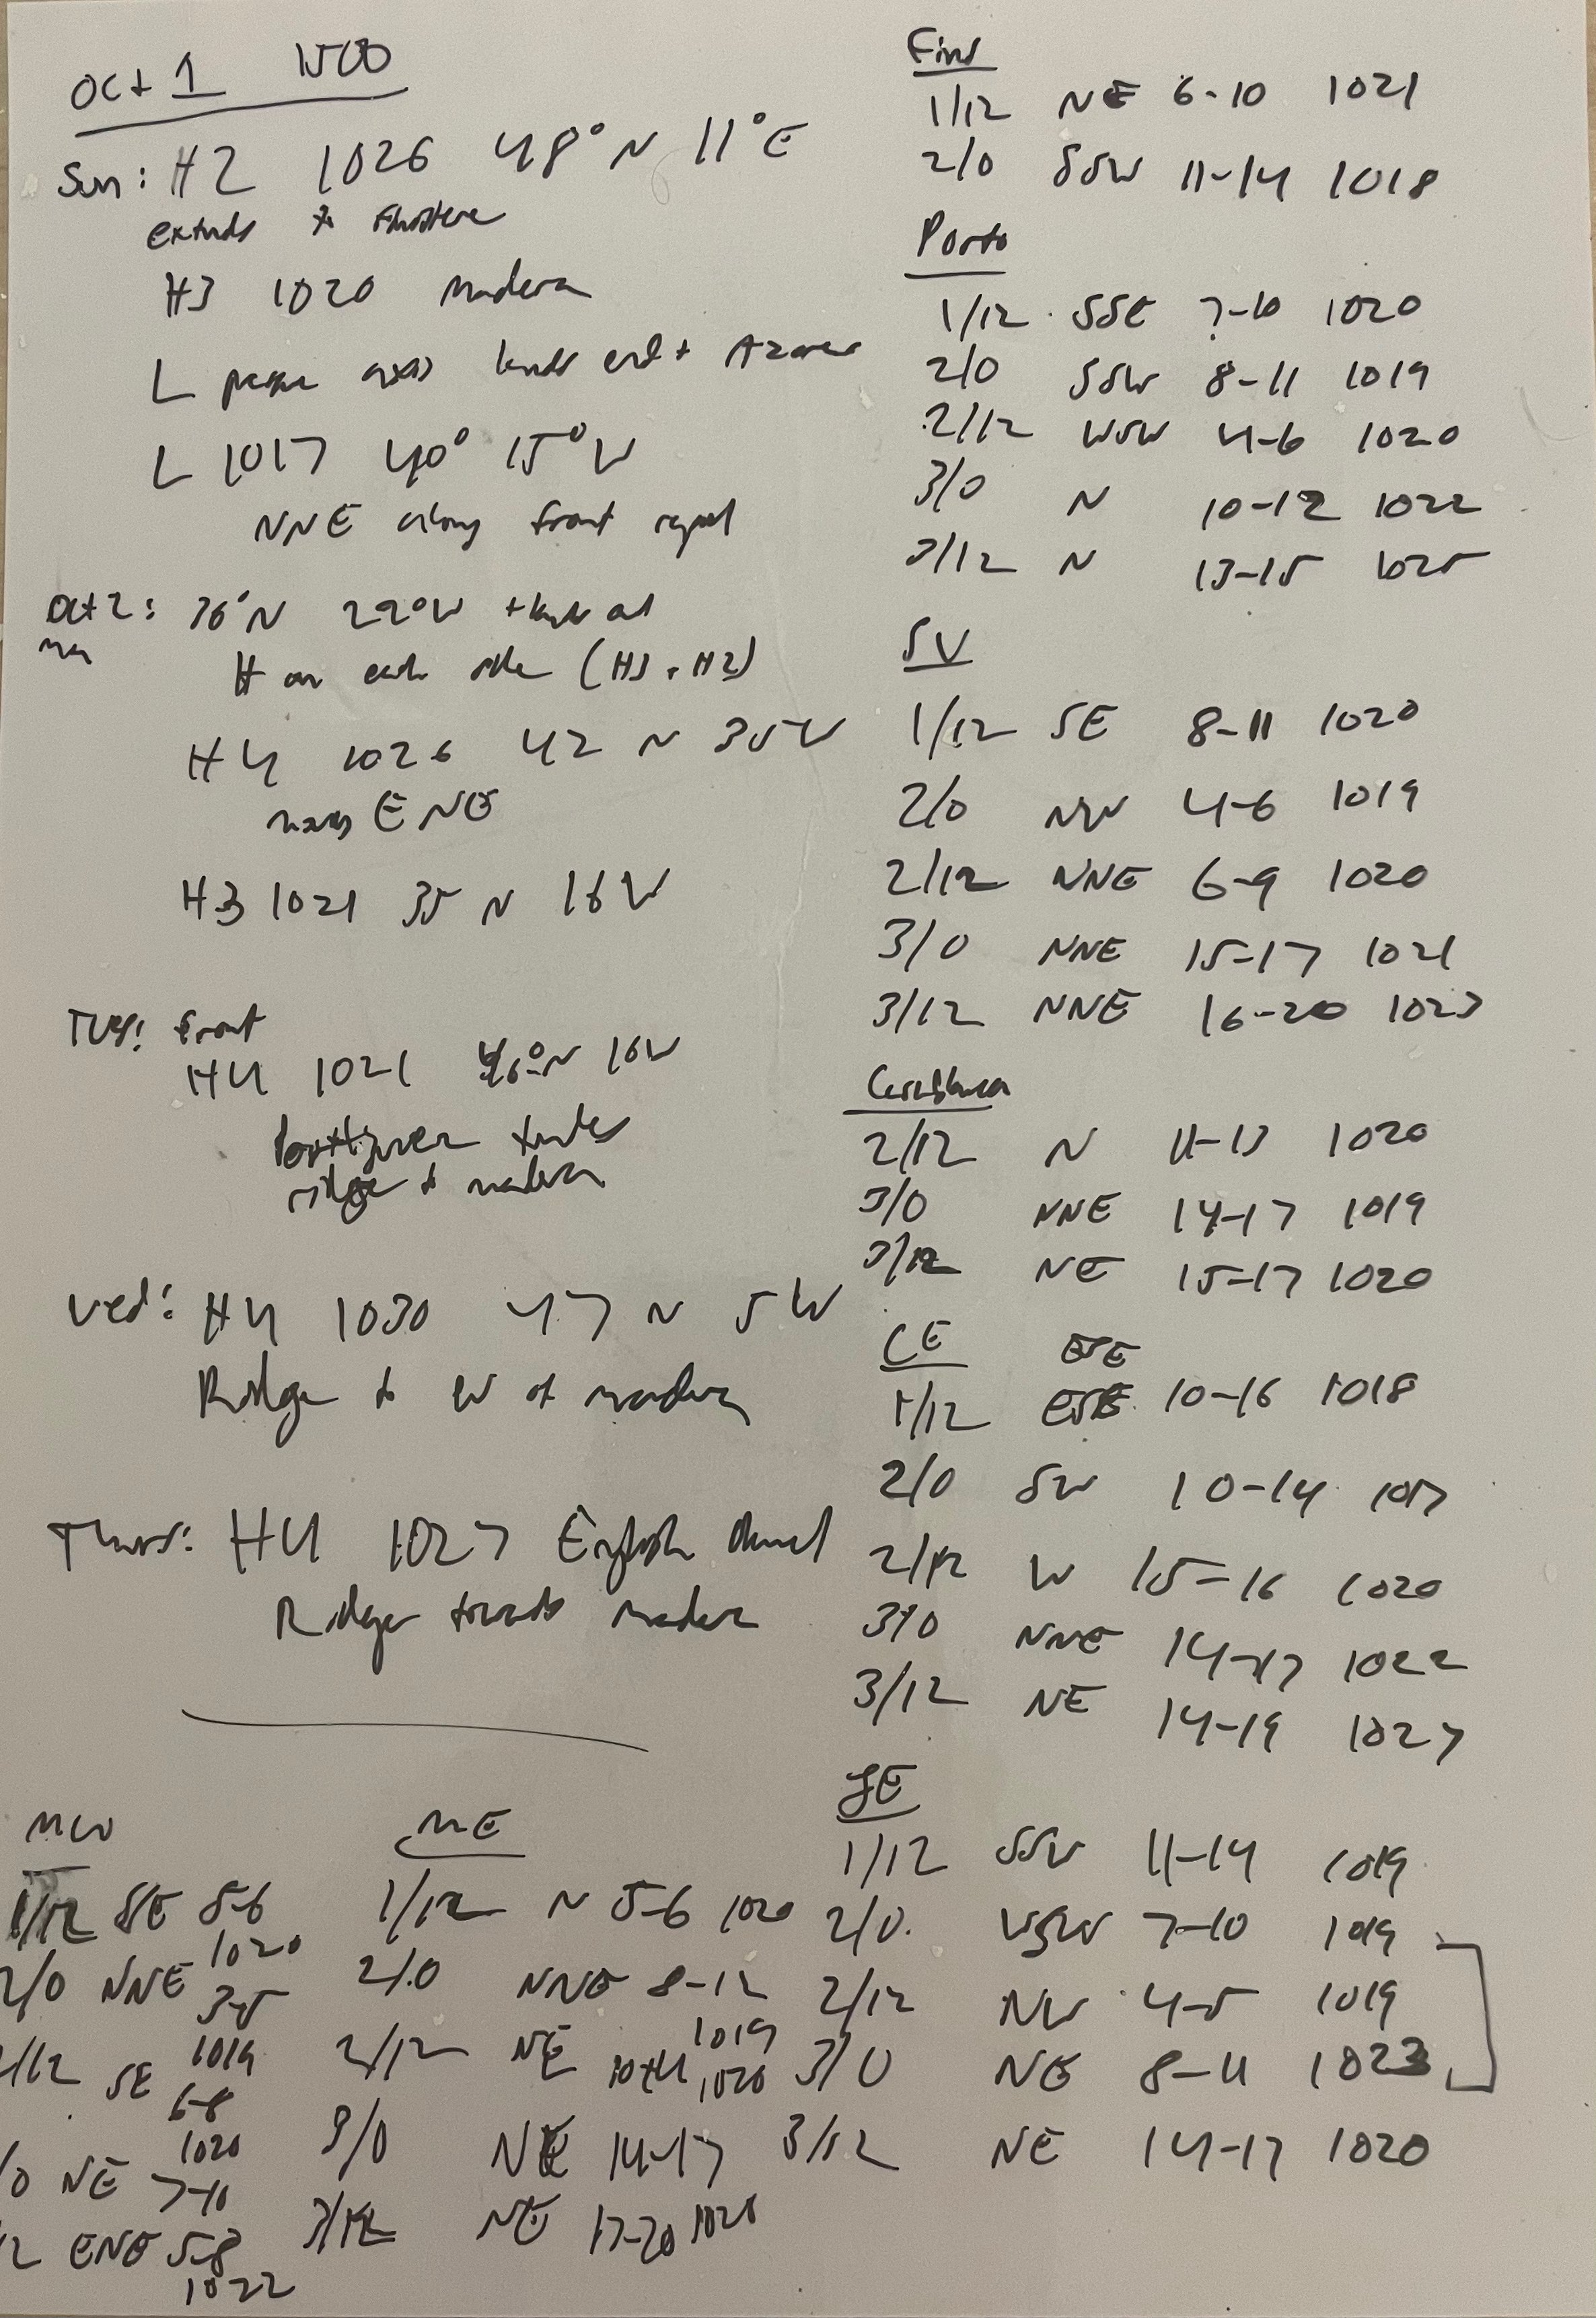 Oct 1 1500
Sun: H2 1026 48°N 11°E
extends to
H3 1020 Madera
L axis lands end + Azores
L 1017 40° 15°W
NNE along front
Oct 2: 36°N 22°W
H on each side (H3 + H2)
H4 1026 42 N 35W
moves ENE
H3 1021 35 N 16W
Tues: front
H4 1021 46°N 16W
ridge to madera
Wed: H4 1030 47 N 5W
Ridge to W of madera
Thurs: H4 1027 English Channel
Ridge towards madera
MW
1/12 SE 5-6
1020
2/0 NNE
3-5
1019
/12 SE
6-8
1020
/0 NE
7-10
2 ENE 5-8
1022
ME
1/12 N 5-6 1020
2/0 NNE 8-12
1019
2/12 NE 1020
3/0 NE 14-17
3/12 NE 17-20 1020
Finis
1/12 NE 6-10 1021
2/0 SSW 11-14 1018
Porto
1/12 SSE 7-10 1020
2/0 SSW 8-11 1019
2/12 WSW 4-6 1020
3/0 N 10-12 1022
3/12 N 13-15 1025
SV
1/12 SE 8-11 1020
2/0 NW 4-6 1019
2/12 NNE 6-9 1020
3/0 NNE 15-17 1021
3/12 NNE 16-20 1023
Casablanca
2/12 N 11-13 1020
3/0 NNE 14-17 1019
3/12 NE 15-17 1020
CE ESE
1/12 10-16 1018
2/0 SW 10-14 1017
2/12 W 15-16 1020
3/0 NNE 14-17 1022
3/12 NE 14-19 1027
JE
1/12 SSW 11-14 1019
2/0 WSW 7-10 1019
2/12 NW 4-5 1019
3/0 NE 8-11 1023
3/12 NE 14-17 1020